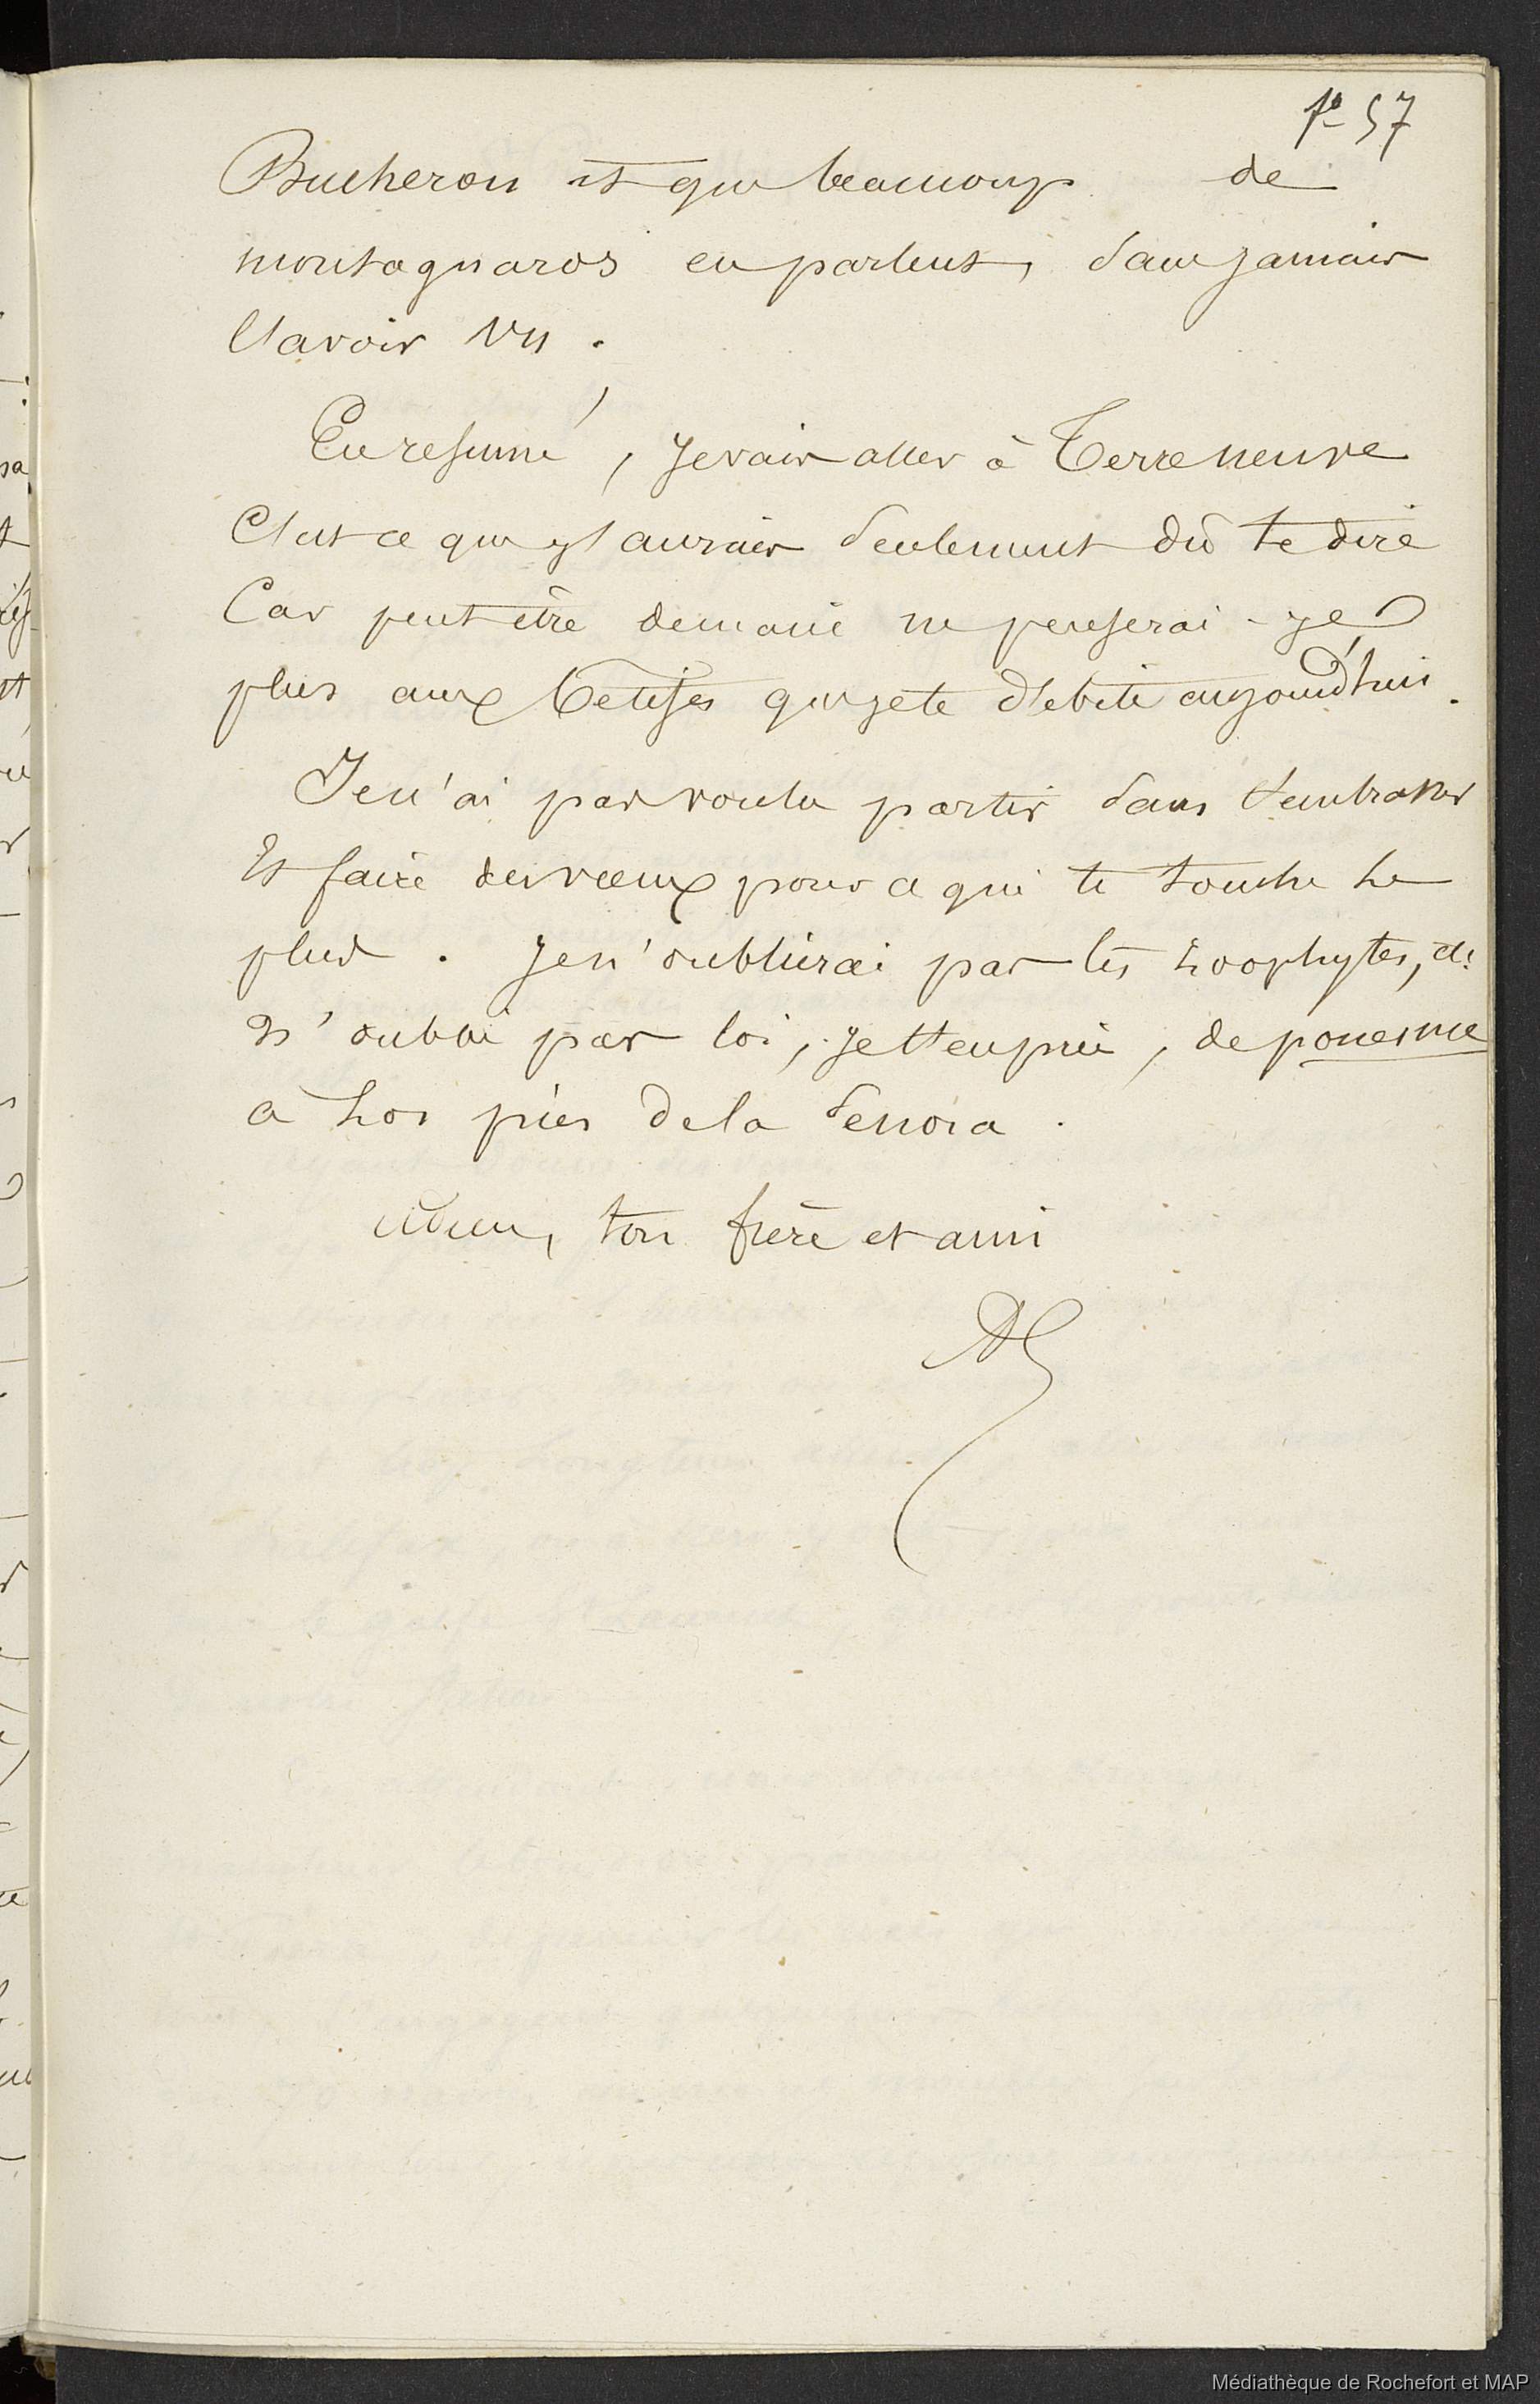 fo 57
Bucheron et que beaucoup de
montagnards en parlent, sans jamais
l'avoir vu.
En resumé, je vais aller à Terreneuve
C'est ce que j'aurais seulement dû te dire
Car peut être demain ne penserai-je
plus aux betises que je te débite aujourd'hui.
Je n'ai pas voulu partir sans t'embrasser
Et faire des vœux pour ce qui te touche le
plus. Je n'oublirai pas les zoophytes, et
n'oubli pas toi, je t'en prie, de ponerme
a los pies de la senora.
Adieu, ton frère et ami
Médiathèque de Rochefort et MAP